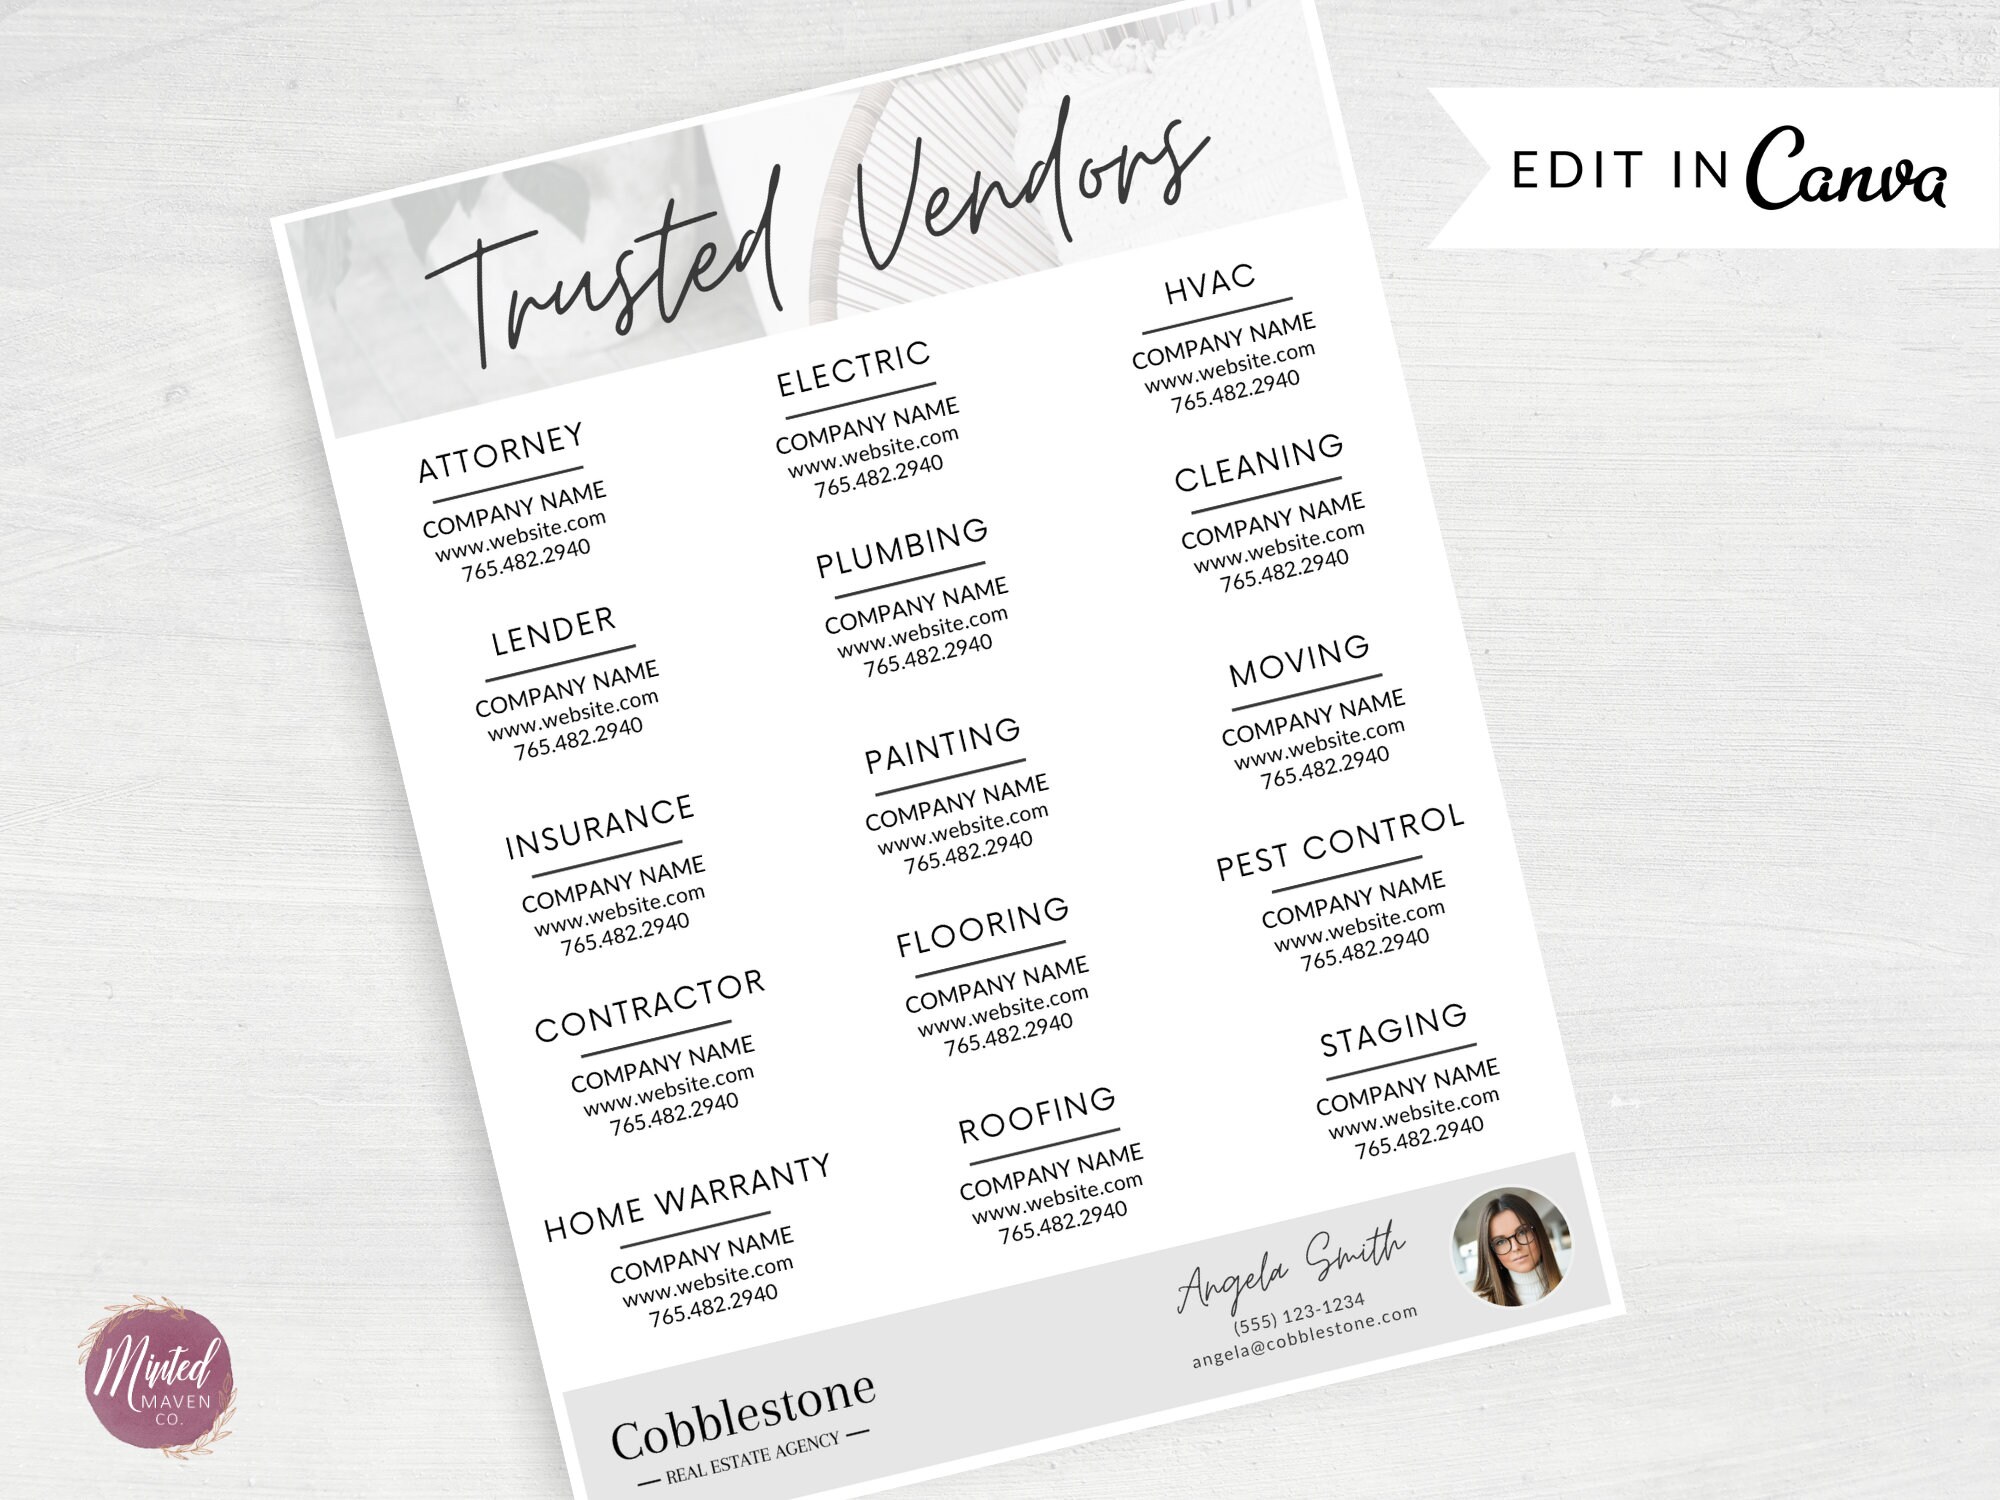 Trusted Vendors
EDIT IN Canva
ATTORNEY
COMPANY NAME
www.website.com
765.482.2940
LENDER
COMPANY NAME
www.website.com
765.482.2940
INSURANCE
COMPANY NAME
www.website.com
765.482.2940
CONTRACTOR
COMPANY NAME
www.website.com
765.482.2940
HOME WARRANTY
COMPANY NAME
www.website.com
765.482.2940
ELECTRIC
COMPANY NAME
www.website.com
765.482.2940
PLUMBING
COMPANY NAME
www.website.com
765.482.2940
PAINTING
COMPANY NAME
www.website.com
765.482.2940
FLOORING
COMPANY NAME
www.website.com
765.482.2940
ROOFING
COMPANY NAME
www.website.com
765.482.2940
HVAC
COMPANY NAME
www.website.com
765.482.2940
CLEANING
COMPANY NAME
www.website.com
765.482.2940
MOVING
COMPANY NAME
www.website.com
765.482.2940
PEST CONTROL
COMPANY NAME
www.website.com
765.482.2940
STAGING
COMPANY NAME
www.website.com
765.482.2940
Cobblestone
REAL ESTATE AGENCY
Angela Smith
(555) 123-1234
angela@cobblestone.com
Minted
MAVEN
CO.